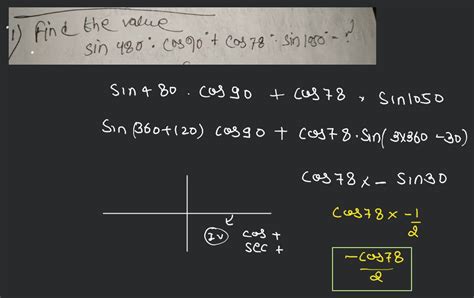 1) Find the value
sin 480°. cos 90° + cos 78°. sin 1050° = ?
Sin 480 . cos 90 + cos 78 x sin 1050
Sin (360+120) cos 90 + cos 78 . Sin( 3x360 - 30)
cos 78 x - sin 30
cos 78 x -1/2
IV cos +
sec +
-cos 78/2